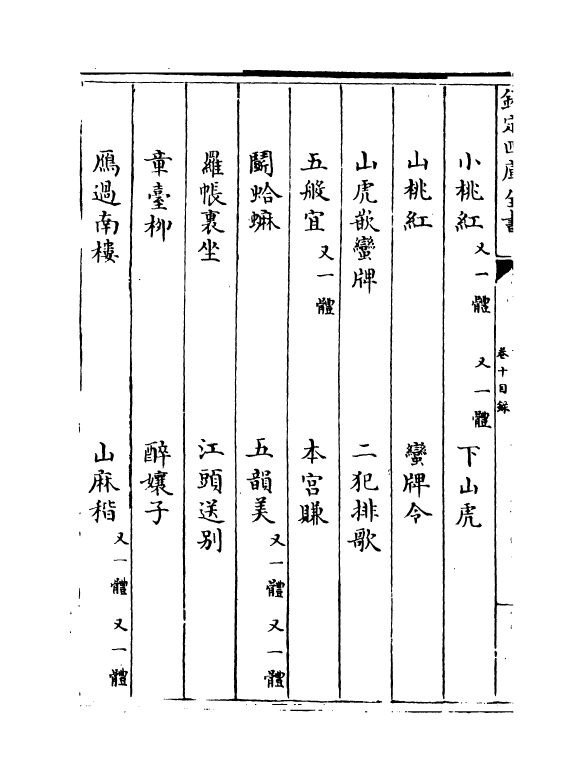 欽定四庫全書
卷十目錄
小桃紅 又一體 又一體 下山虎
山桃紅 蠻牌令
山虎嵌蠻牌 二犯排歌
五般宜 又一體 本宮賺
鬭蛤蟆 五韻美 又一體 又一體
羅帳裏坐 江頭送别
章臺柳 醉孃子
鴈過南樓 山麻稭 又一體 又一體